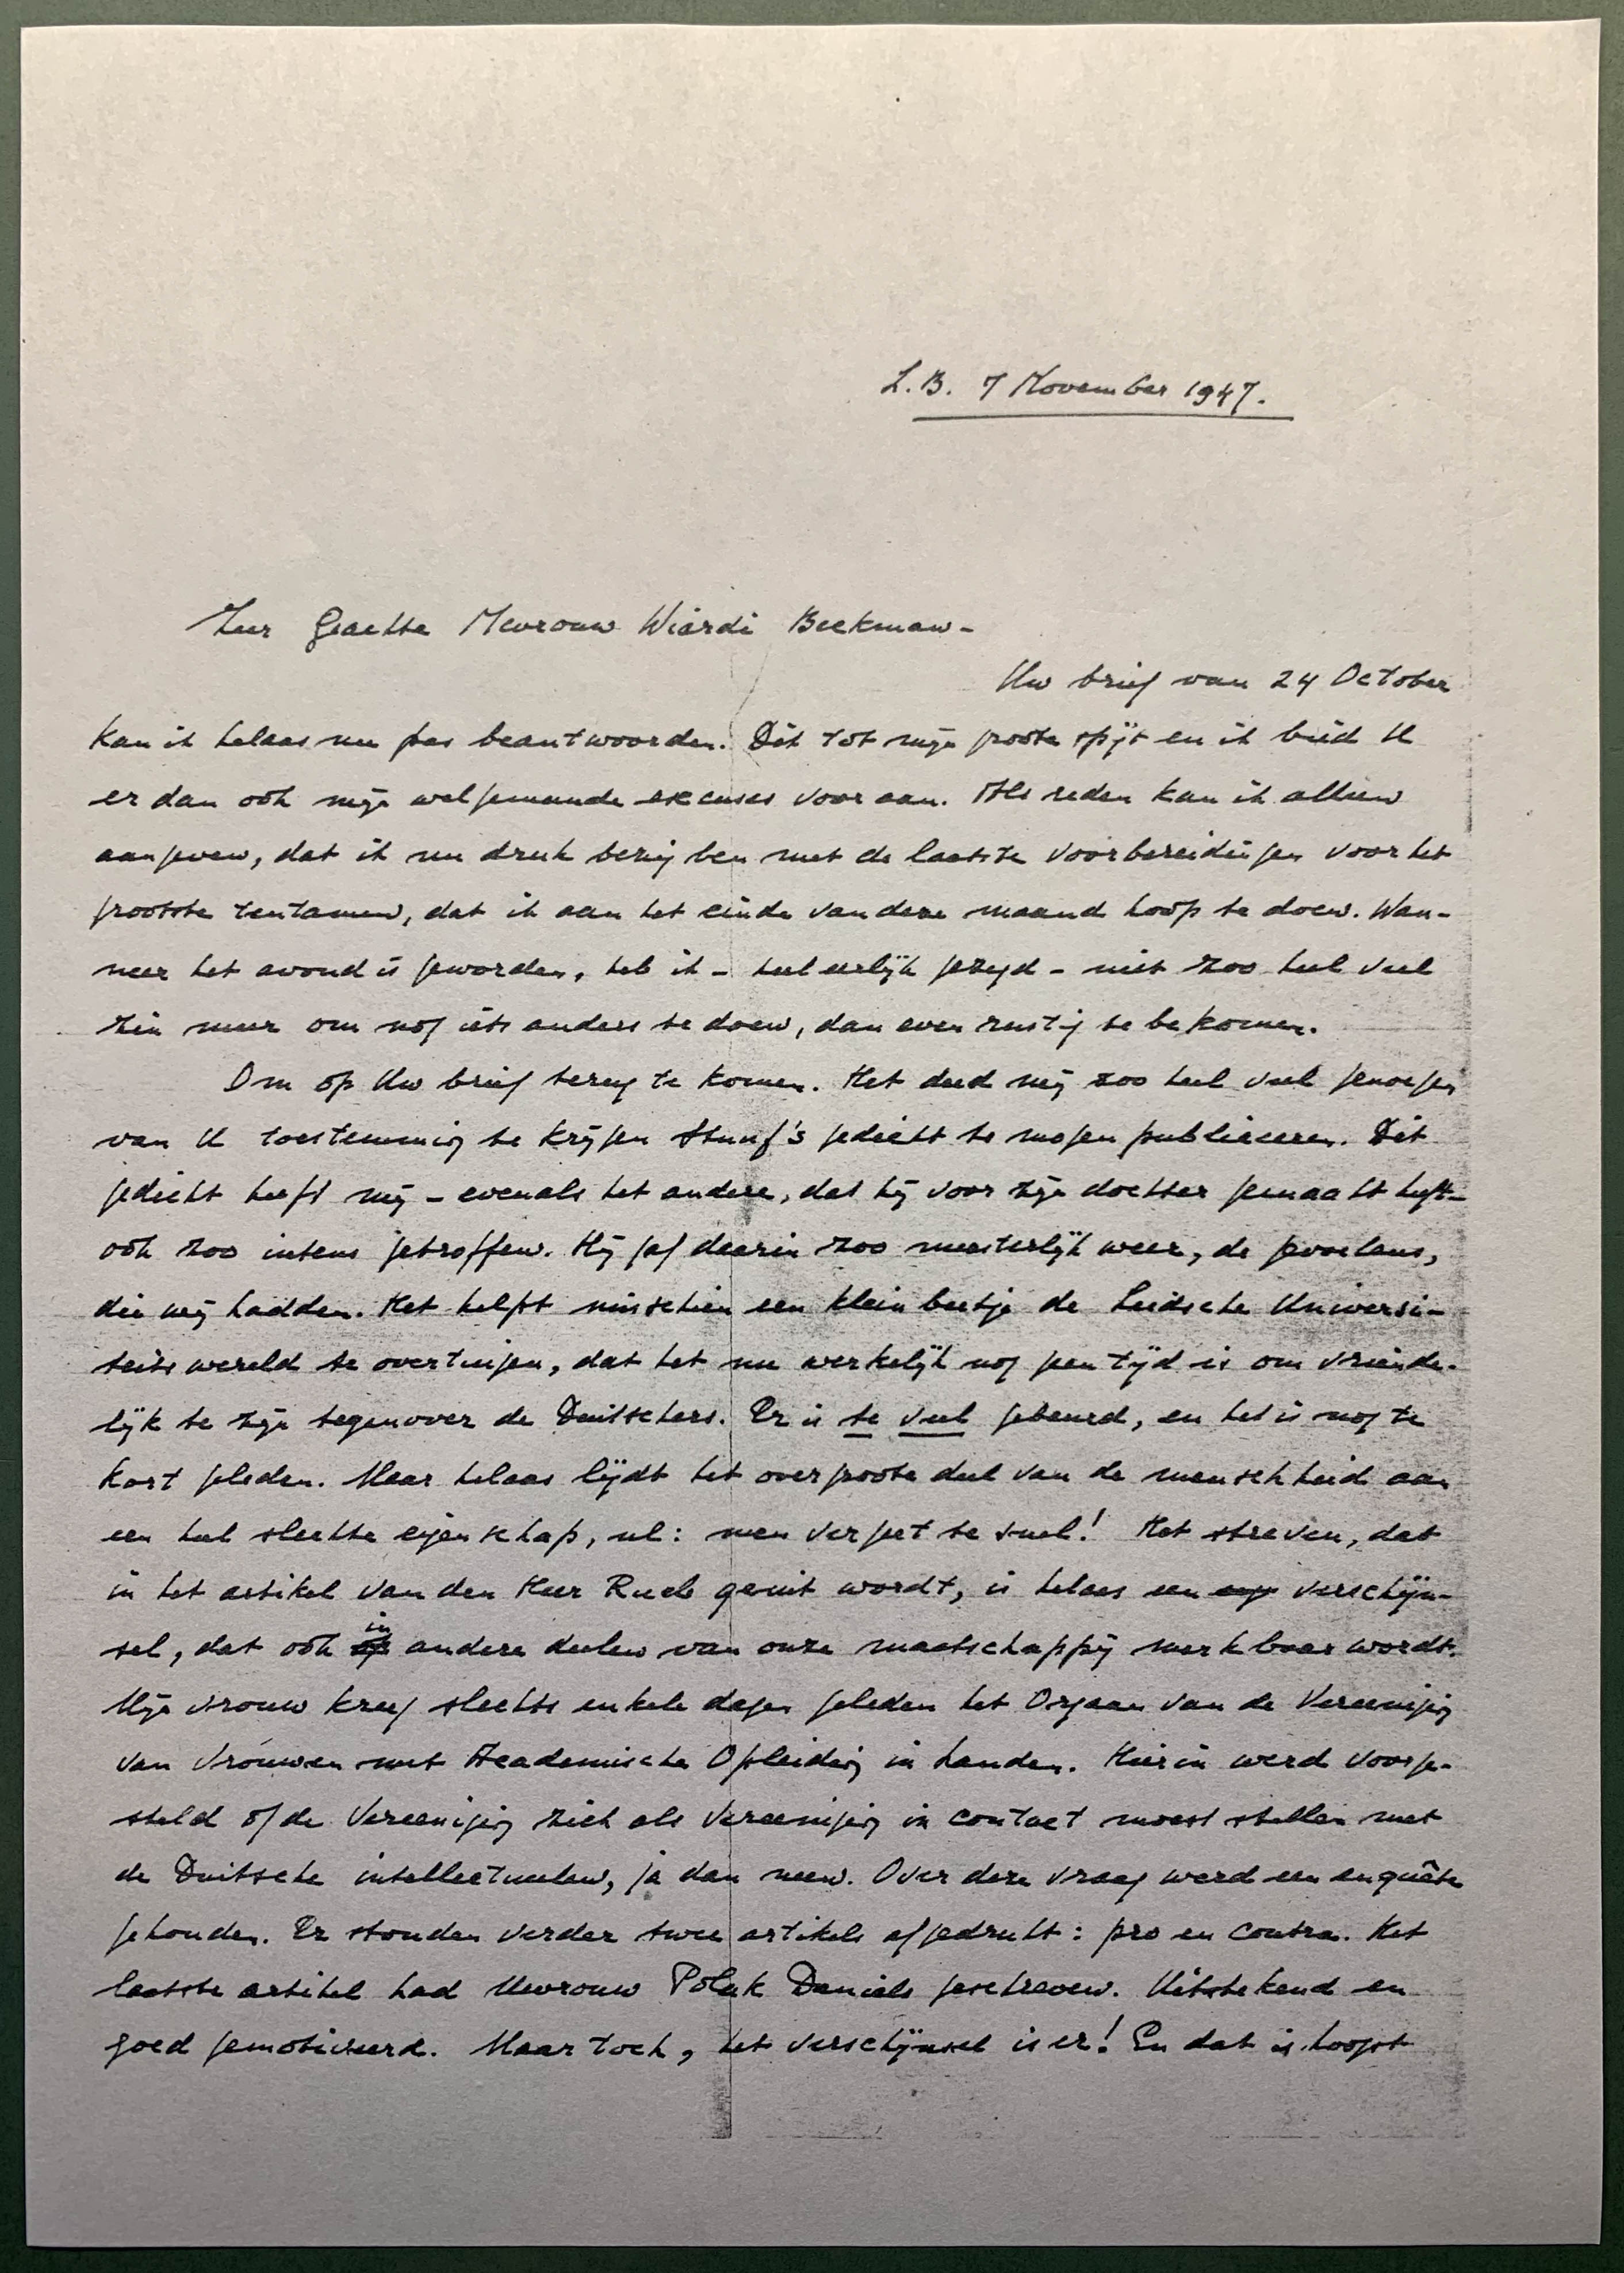 L.B. 7 November 1947.
Zeer Geachte Mevrouw Wiardi Beckman-
Uw brief van 24 October
kan ik helaas nu pas beantwoorden. Dit tot mijn groote spijt en ik bied U
er dan ook mijn welgemeende excuses voor aan. Als reden kan ik alleen
aangeven, dat ik nu druk bezig ben met de laatste voorbereidingen voor het
grootste tentamen, dat ik aan het einde van deze maand hoop te doen. Wan-
neer het avond is geworden, heb ik - heel eerlijk gezegd - niet zoo heel veel
zin meer om nog iets anders te doen, dan even rustig te bekomen.
Om op Uw brief terug te komen. Het deed mij zoo heel veel genoegen
van U toestemming te krijgen Stuuf's gedicht te mogen publiceeren. Dit
gedicht heeft mij - evenals het andere, dat hij voor zijn dochter gemaakt heeft-
ook zoo intens getroffen. Hij gaf daarin zoo meesterlijk weer, de gevoelens,
die wij hadden. Het helpt misschien een klein beetje de Leidsche Universi-
teits wereld te overtuigen, dat het nu werkelijk nog geen tijd is om vriende-
lijk te zijn tegenover de Duitschers. Er is te veel gebeurd, en het is nog te
kort geleden. Maar helaas lijdt het overgroote deel van de menschheid aan
een heel slechte eigenschap, nl: men vergeet te snel! Het streven, dat
in het artikel van den Heer Rueb geuit wordt, is helaas een verschijn-
sel, dat ook in andere deelen van onze maatschappij merkbaar wordt.
Mijn vrouw kreeg slechts enkele dagen geleden het Orgaan van de Vereeniging
van Vrouwen met Academische Opleiding in handen. Hierin werd voorge-
steld of de Vereeniging zich als Vereeniging in contact moest stellen met
de Duitsche intellectueelen, ja dan neen. Over deze vraag werd een enquête
gehouden. Er stonden verder twee artikels afgedrukt: pro en contra. Het
laatste artikel had Mevrouw Polak Daniels geschreven. Uitstekend en
goed gemotiveerd. Maar toch, het verschijnsel is er! En dat is hoogst